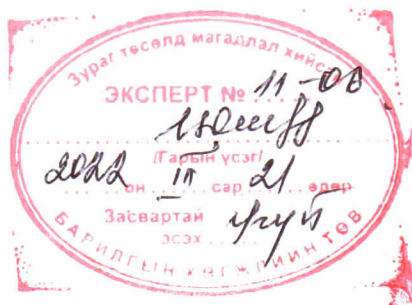 Зураг төсөлд магадлал хийсэн
ЭКСПЕРТ № 11-06
/Гарын үсэг/
2022 он III сар 21 өдөр
Засвартай
эсэх үгүй
БАРИЛГЫН ХӨГЖЛИЙН ТӨВ